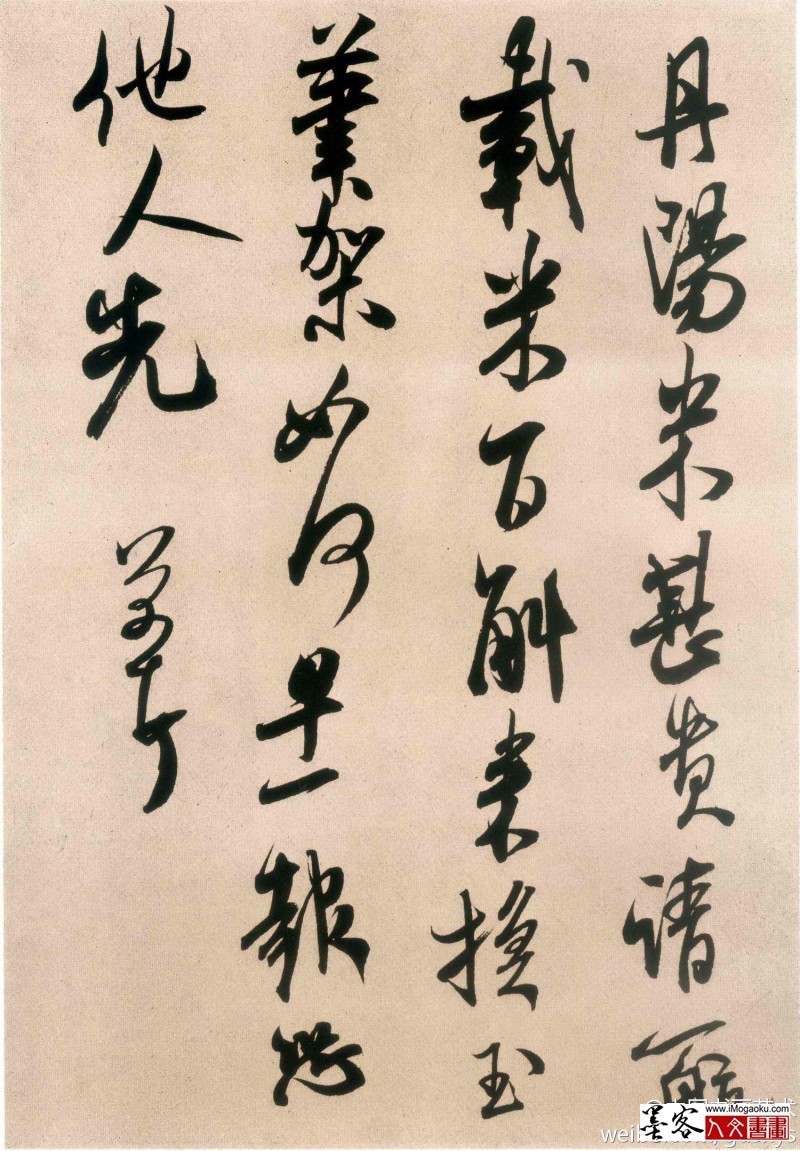 丹陽米甚貴請一航
載米百斛來換玉
筆架如何早一報恐
他人先 芾頓首
墨客
www.iMogaoku.com
人文書畫